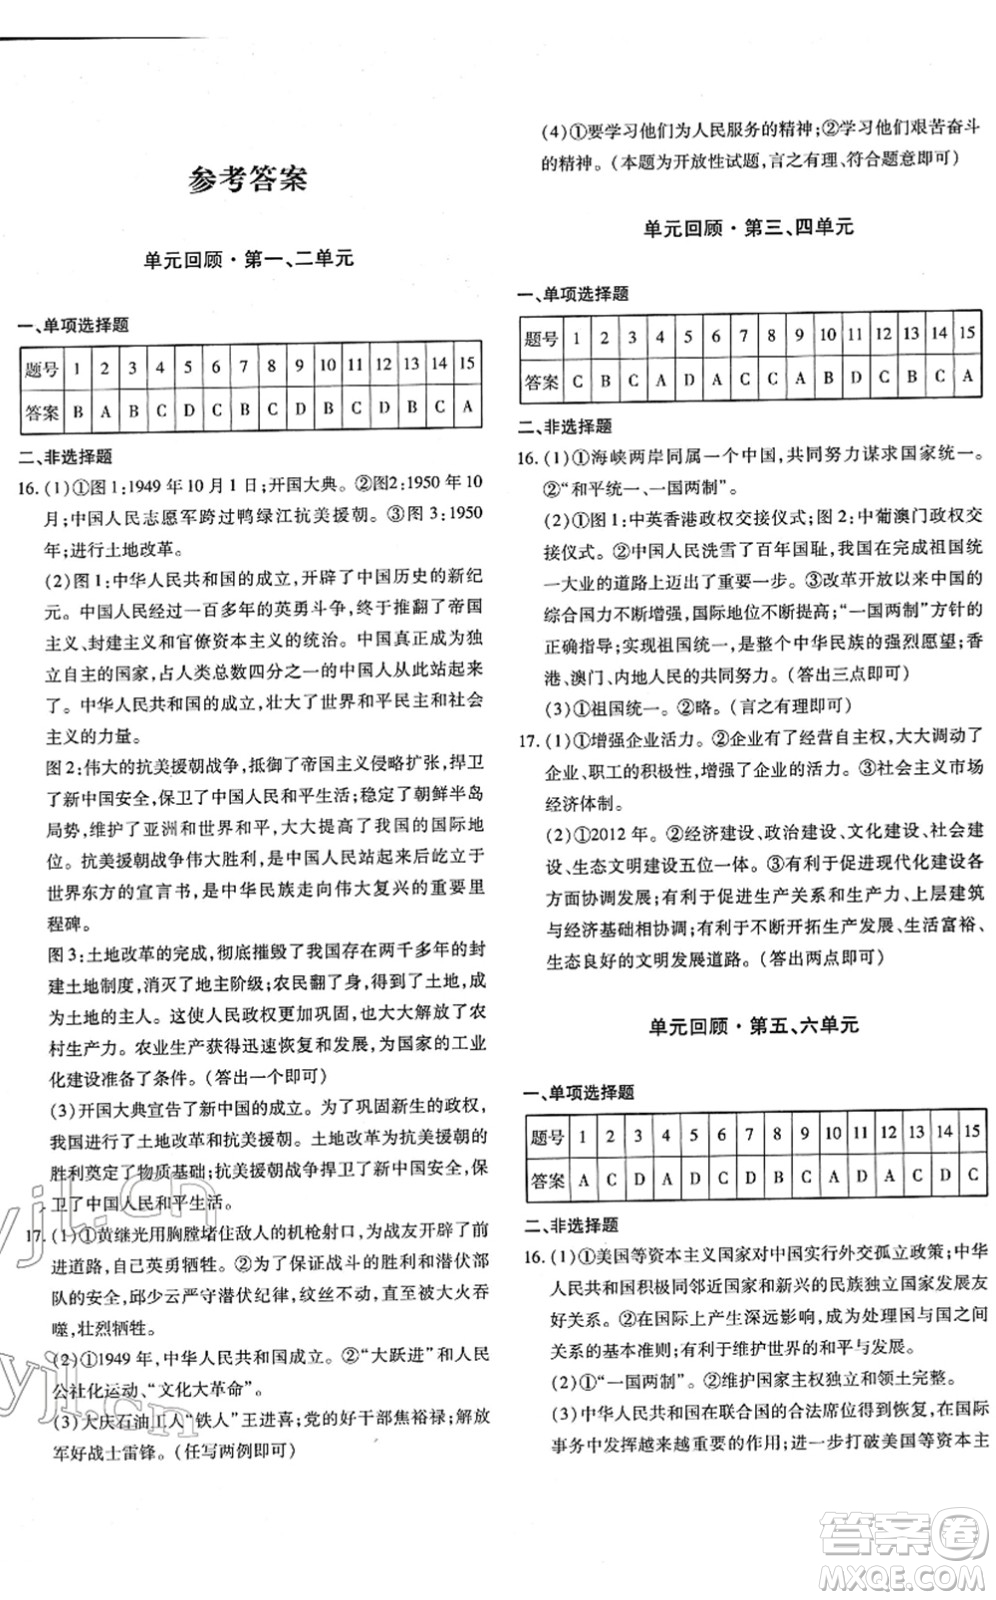 参考答案
单元回顾·第一、二单元
一、单项选择题
题号 1 2 3 4 5 6 7 8 9 10 11 12 13 14 15
答案 B A B C D C B C D C A D B C A
二、非选择题
16.(1)①图1:1949年10月1日;开国大典。②图2:1950年10
月;中国人民志愿军跨过鸭绿江抗美援朝。③图3:1950
年;进行土地改革。
(2)图1:中华人民共和国的成立,开辟了中国历史的新纪
元。中国人民经过一百多年的英勇斗争,终于推翻了帝国
主义、封建主义和官僚资本主义的统治。中国真正成为独
立自主的国家,占人类总数四分之一的中国人从此站起来
了。中华人民共和国的成立,壮大了世界和平民主和社会
主义的力量。
图2:伟大的抗美援朝战争,抵御了帝国主义侵略扩张,捍卫
了新中国安全,保卫了中国人民和平生活;稳定了朝鲜半岛
局势,维护了亚洲和世界和平,大大提高了我国的国际地
位。抗美援朝战争伟大胜利,是中国人民站起来后屹立于
世界东方的宣言书,是中华民族走向伟大复兴的重要里
程碑。
图3:土地改革的完成,彻底摧毁了我国存在两千多年的封
建土地制度,消灭了地主阶级;农民翻了身,得到了土地,成
为土地的主人。这使人民政权更加巩固,也大大解放了农
村生产力。农业生产获得迅速恢复和发展,为国家的工业
化建设准备了条件。(答出一个即可)
(3)开国大典宣告了新中国的成立。为了巩固新生的政权,
我国进行了土地改革和抗美援朝。土地改革为抗美援朝的
胜利奠定了物质基础;抗美援朝战争捍卫了新中国安全,保
卫了中国人民和平生活。
17.(1)①黄继光用胸膛堵住敌人的机枪射口,为战友开辟了前
进道路,自己英勇牺牲。②为了保证战斗的胜利和潜伏部
队的安全,邱少云严守潜伏纪律,纹丝不动,直至被大火吞
噬,壮烈牺牲。
(2)①1949年,中华人民共和国成立。②“大跃进”和人民
公社化运动、“文化大革命”。
(3)大庆石油工人“铁人”王进喜;党的好干部焦裕禄;解放
军好战士雷锋。(任写两例即可)
(4)①要学习他们为人民服务的精神;②学习他们艰苦奋斗
的精神。(本题为开放性试题,言之有理、符合题意即可)
单元回顾·第三、四单元
一、单项选择题
题号 1 2 3 4 5 6 7 8 9 10 11 12 13 14 15
答案 C B C A D A C C A B D C B C A
二、非选择题
16.(1)①海峡两岸同属一个中国,共同努力谋求国家统一。
②“和平统一、一国两制”。
(2)①图1:中英香港政权交接仪式;图2:中葡澳门政权交
接仪式。②中国人民洗雪了百年国耻,我国在完成祖国统
一大业的道路上迈出了重要一步。③改革开放以来中国的
综合国力不断增强,国际地位不断提高;“一国两制”方针的
正确指导;实现祖国统一,是整个中华民族的强烈愿望;香
港、澳门、内地人民的共同努力。(答出三点即可)
(3)①祖国统一。②略。(言之有理即可)
17.(1)①增强企业活力。②企业有了经营自主权,大大调动了
企业、职工的积极性,增强了企业的活力。③社会主义市场
经济体制。
(2)①2012年。②经济建设、政治建设、文化建设、社会建
设、生态文明建设五位一体。③有利于促进现代化建设各
方面协调发展;有利于促进生产关系和生产力、上层建筑
与经济基础相协调;有利于不断开拓生产发展、生活富裕、
生态良好的文明发展道路。(答出两点即可)
单元回顾·第五、六单元
一、单项选择题
题号 1 2 3 4 5 6 7 8 9 10 11 12 13 14 15
答案 A C D A D C B D C D A C A D C
二、非选择题
16.(1)①美国等资本主义国家对中国实行外交孤立政策;中华
人民共和国积极同邻近国家和新兴的民族独立国家发展友
好关系。②在国际上产生深远影响,成为处理国与国之间
关系的基本准则;有利于维护世界的和平与发展。
(2)①“一国两制”。②维护国家主权和领土完整。
(3)中华人民共和国在联合国的合法席位得到恢复,在国际
事务中发挥越来越重要的作用;进一步打破美国等资本主
yjl.cn
yjl.cn
答案卷
MXQE.COM